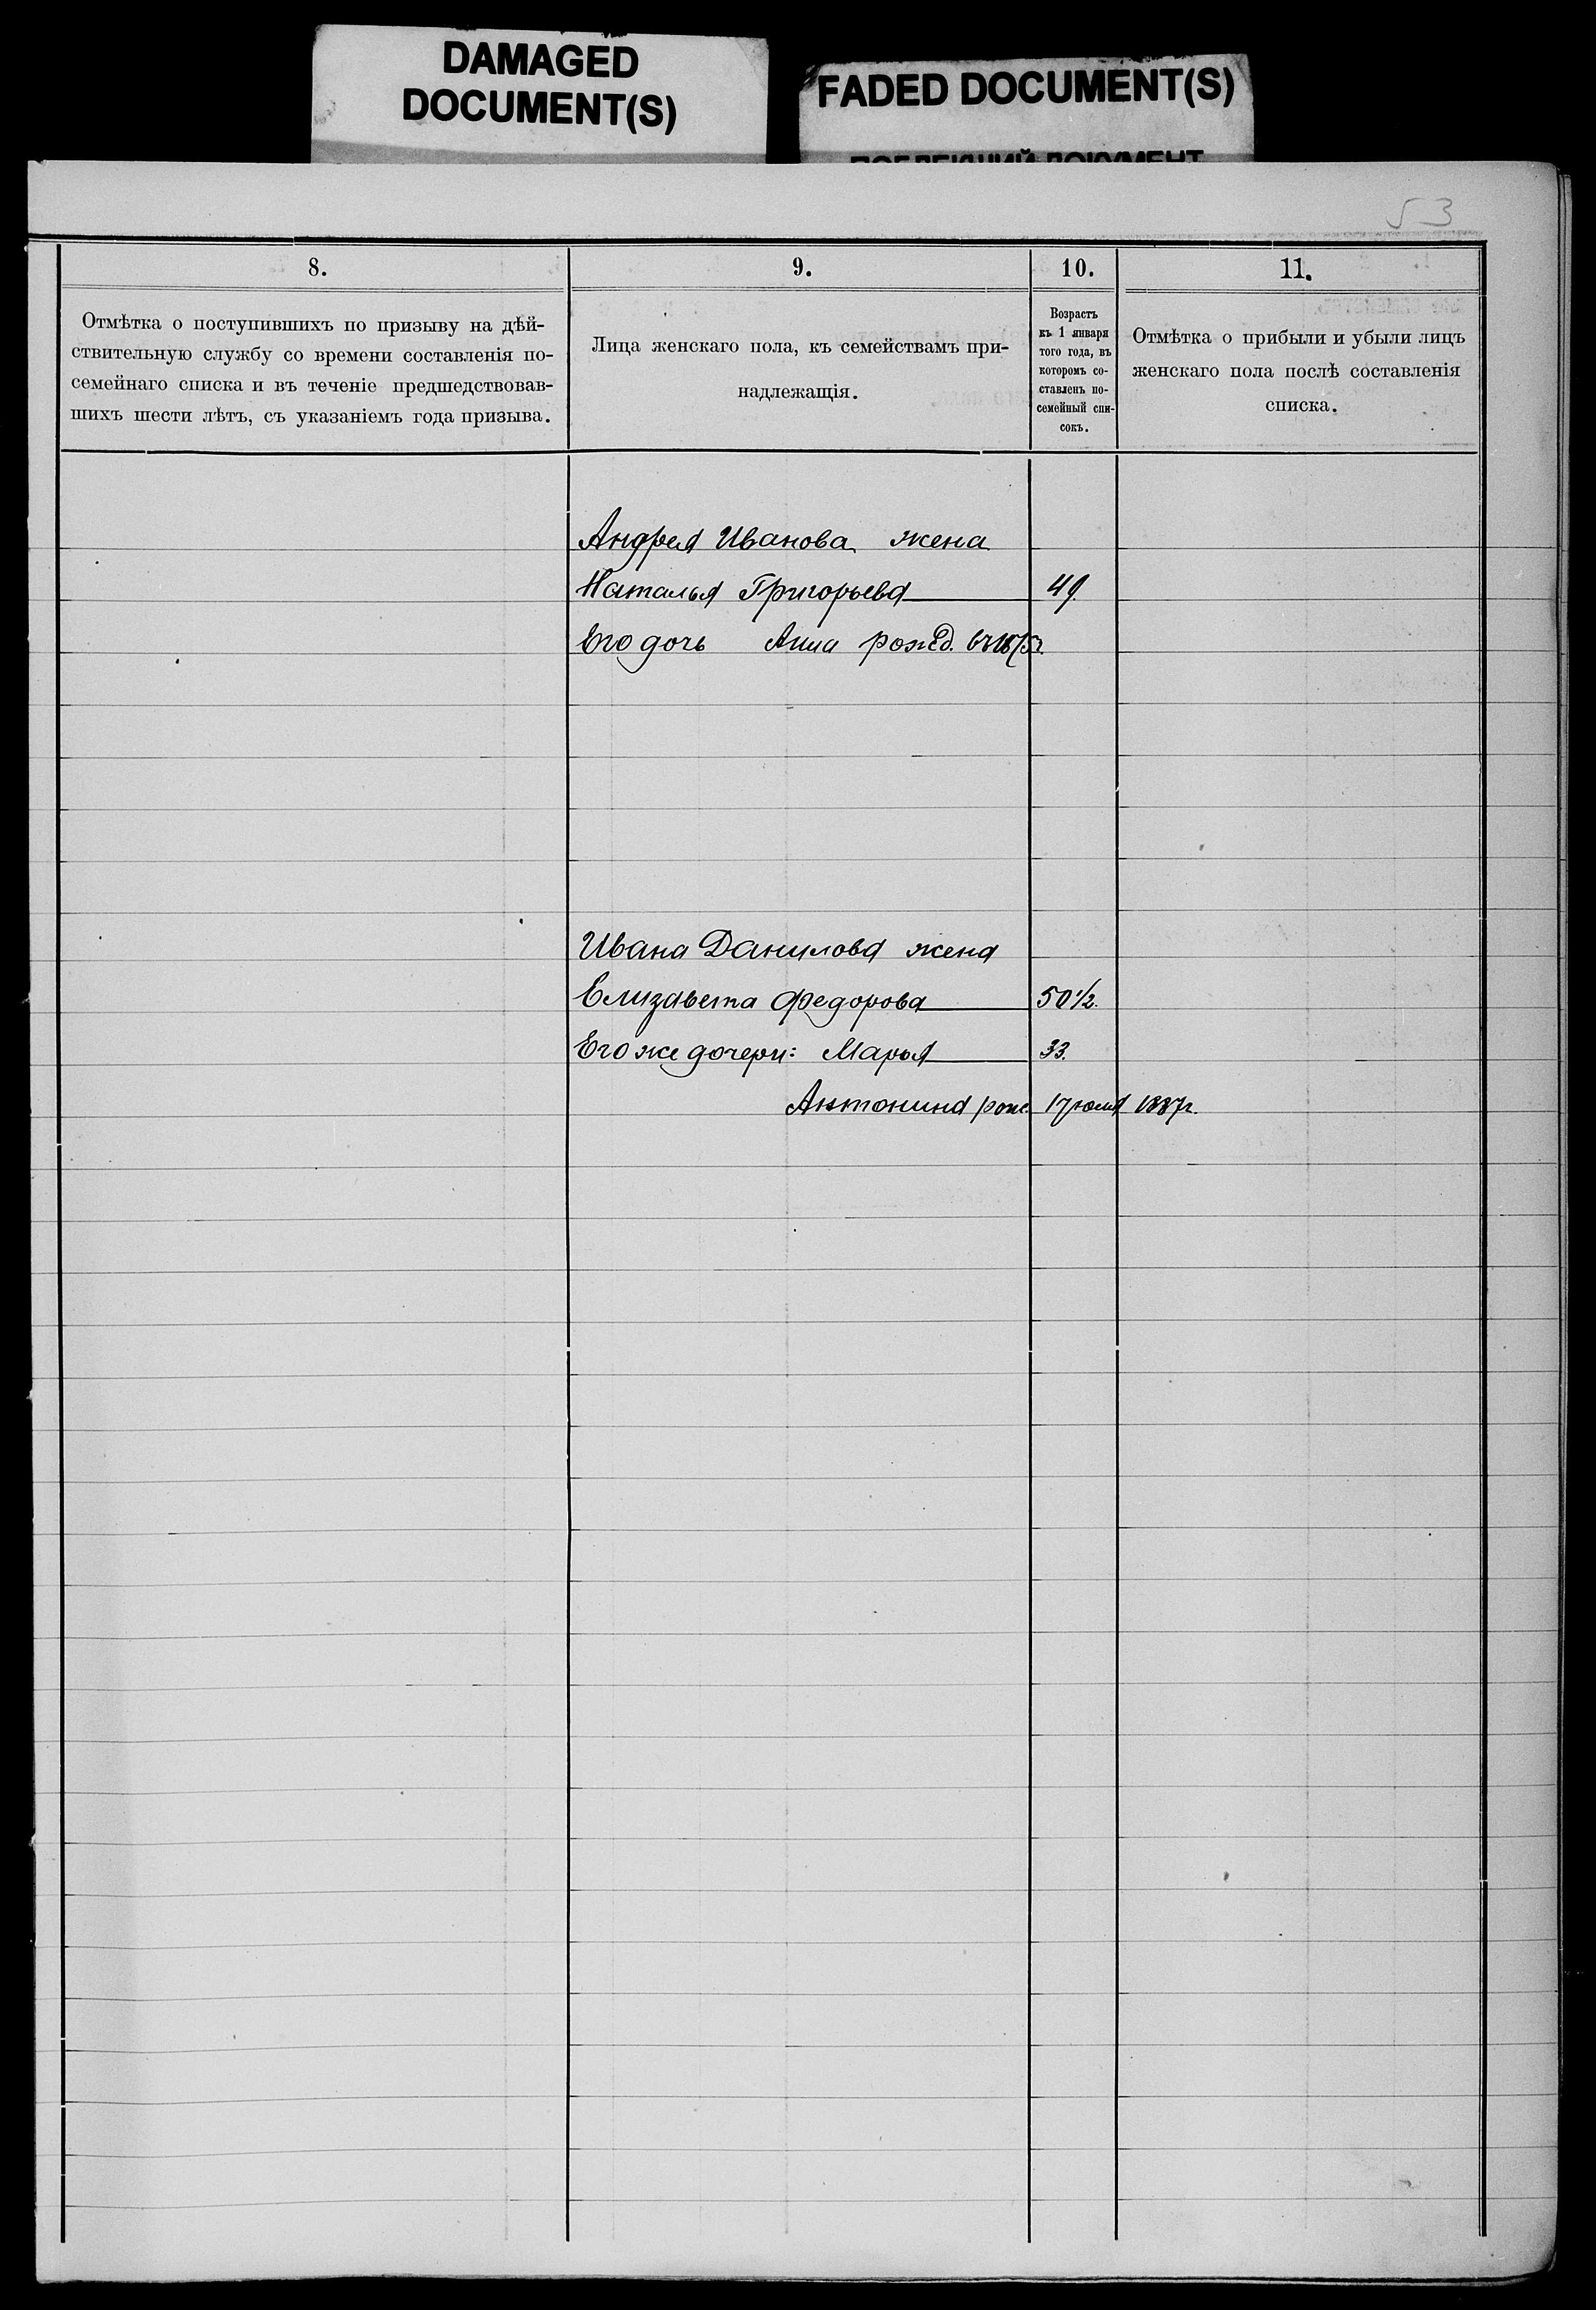 DAMAGED
DOCUMENT(S)
FADED DOCUMENT(S)
ПОБЛЕКШИЙ ДОКУМЕНТ
53
8.
9.
10.
11.
Отмѣтка о поступившихъ по призыву на дѣй-
ствительную службу со времени составленія по-
семейнаго списка и въ теченіе предшедствовав-
шихъ шести лѣтъ, съ указаніемъ года призыва.
Лица женскаго пола, къ семействамъ при-
надлежащія.
Возрастъ
къ 1 января
того года, въ
которомъ со-
ставленъ по-
семейный спи-
сокъ.
Отмѣтка о прибыли и убыли лицъ
женскаго пола послѣ составленія
списка.
Андрея Иванова жена
Наталья Григорьева 49.
Его дочь Анна рожд. въ 1875 г.
Ивана Данилова жена
Елизавета Федорова 50½.
Его же дочери: Марья 33.
Антонина рож. 17 юля 1887 г.